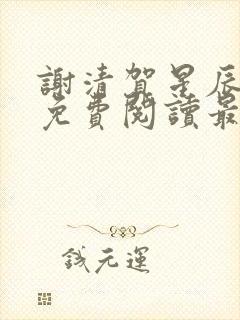 謝清賀星辰
免費閱讀最
錢元運